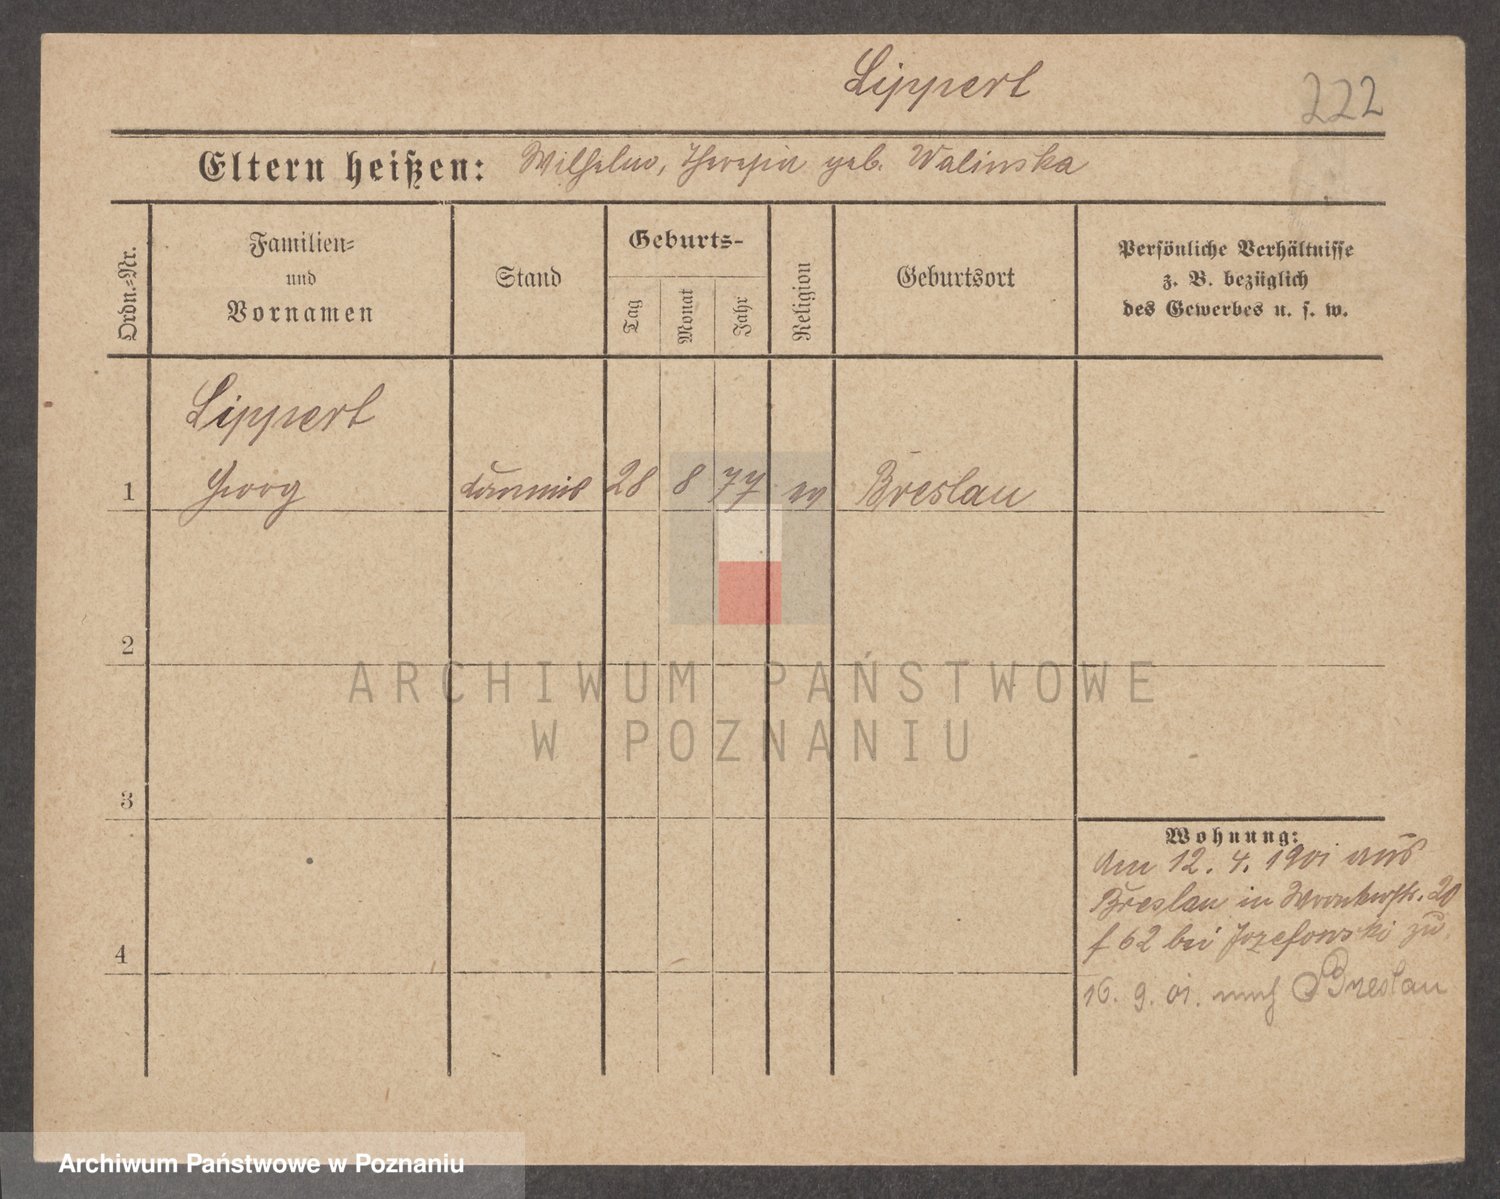 Lippert
222
Eltern heißen: Wilhelm, Theresia geb. Walinska
Ordn.=Nr.
Familien=
und
Vornamen
Stand
Geburts-
Tag
Monat
Jahr
Religion
Geburtsort
Persönliche Verhältnisse
z. B. bezüglich
des Gewerbes u. s. w.
Lippert
1 Georg Kommis 28 8 77 ev Breslau
2
3
4
Wohnung:
Am 12. 4. 1901 aus
Breslau in Wronkerstr. 20
f 62 bei Jozefowski zu
16. 9. 01. nach Breslau
ARCHIWUM PAŃSTWOWE
W POZNANIU
Archiwum Państwowe w Poznaniu